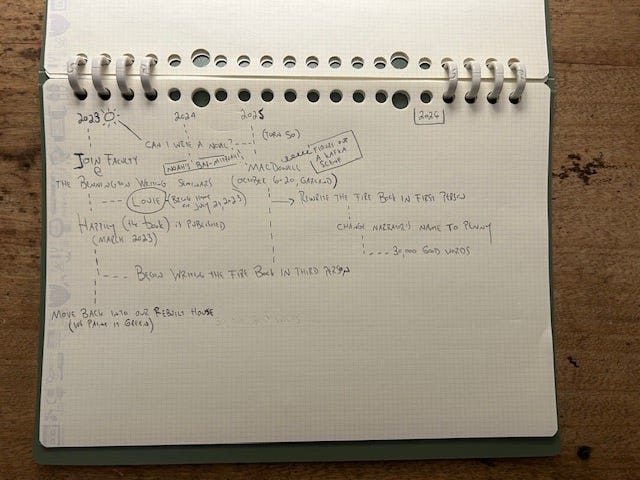 2023 2024 2025 2026
CAN I WRITE A NOVEL?
(TURN 50)
JOIN FACULTY
@
NOAH'S BAR-MITZVAH
MACDOWELL
A KAFKA
THE BENNINGTON WRITING SEMINARS
(OCTOBER 6-20, GARLAND)
LOUIE
(BRING HOME ON JULY 21, 2023)
REWRITE THE FIRE BOOK IN FIRST PERSON
HAPPILY (the book) IS PUBLISHED
(MARCH 2023)
CHANGE NARRATOR'S NAME TO PENNY
30,000 GOOD WORDS
BEGIN WRITING THE FIRE BOOK IN THIRD PERSON
MOVE BACK INTO OUR REBUILT HOUSE
(WE PAINT IT GREEN)